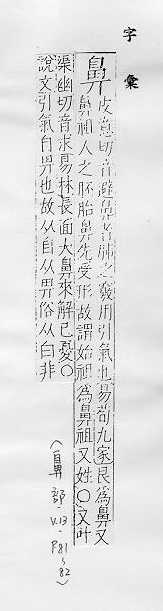 字彙
鼻 皮意切音避鼻者肺之竅用引氣也易荀九家艮爲鼻又
鼻祖人之胚胎鼻先受形故謂始祖爲鼻祖又姓〇又叶
渠幽切音求易林長面大鼻來解已憂〇
說文引氣自畀也故从自从畀俗从白非
(鼻部-V.13-P81~82)